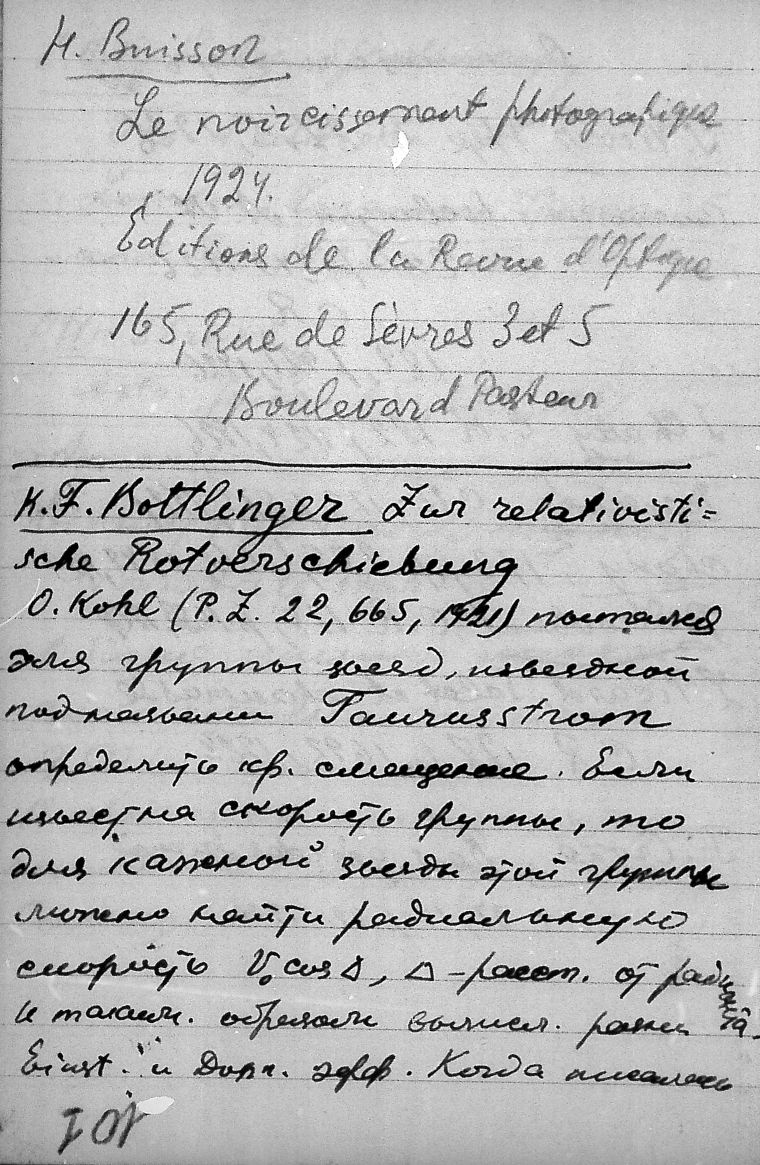 H. Buisson
Le noircissement photografique
1924.
Éditions de la Revue d'Optique
165, Rue de Sèvres 3 et 5
Boulevard Pasteur
K. F. Bottlinger Zur relativisti=
sche Rotverschiebung
O. Kohl (P.Z. 22, 665, 1921) пытался
для группы звезд, извездной
под назвами Taurusstrom
определить кр. смещение. Если
известна скорость группы, то
для каждой звезды этой группы
можно найти радиальную
скорость V₀ cos Δ, Δ – расст. от радианта
и таким. образом вычисл. разн
Einst. и Допп. эфф. Когда писалась
101